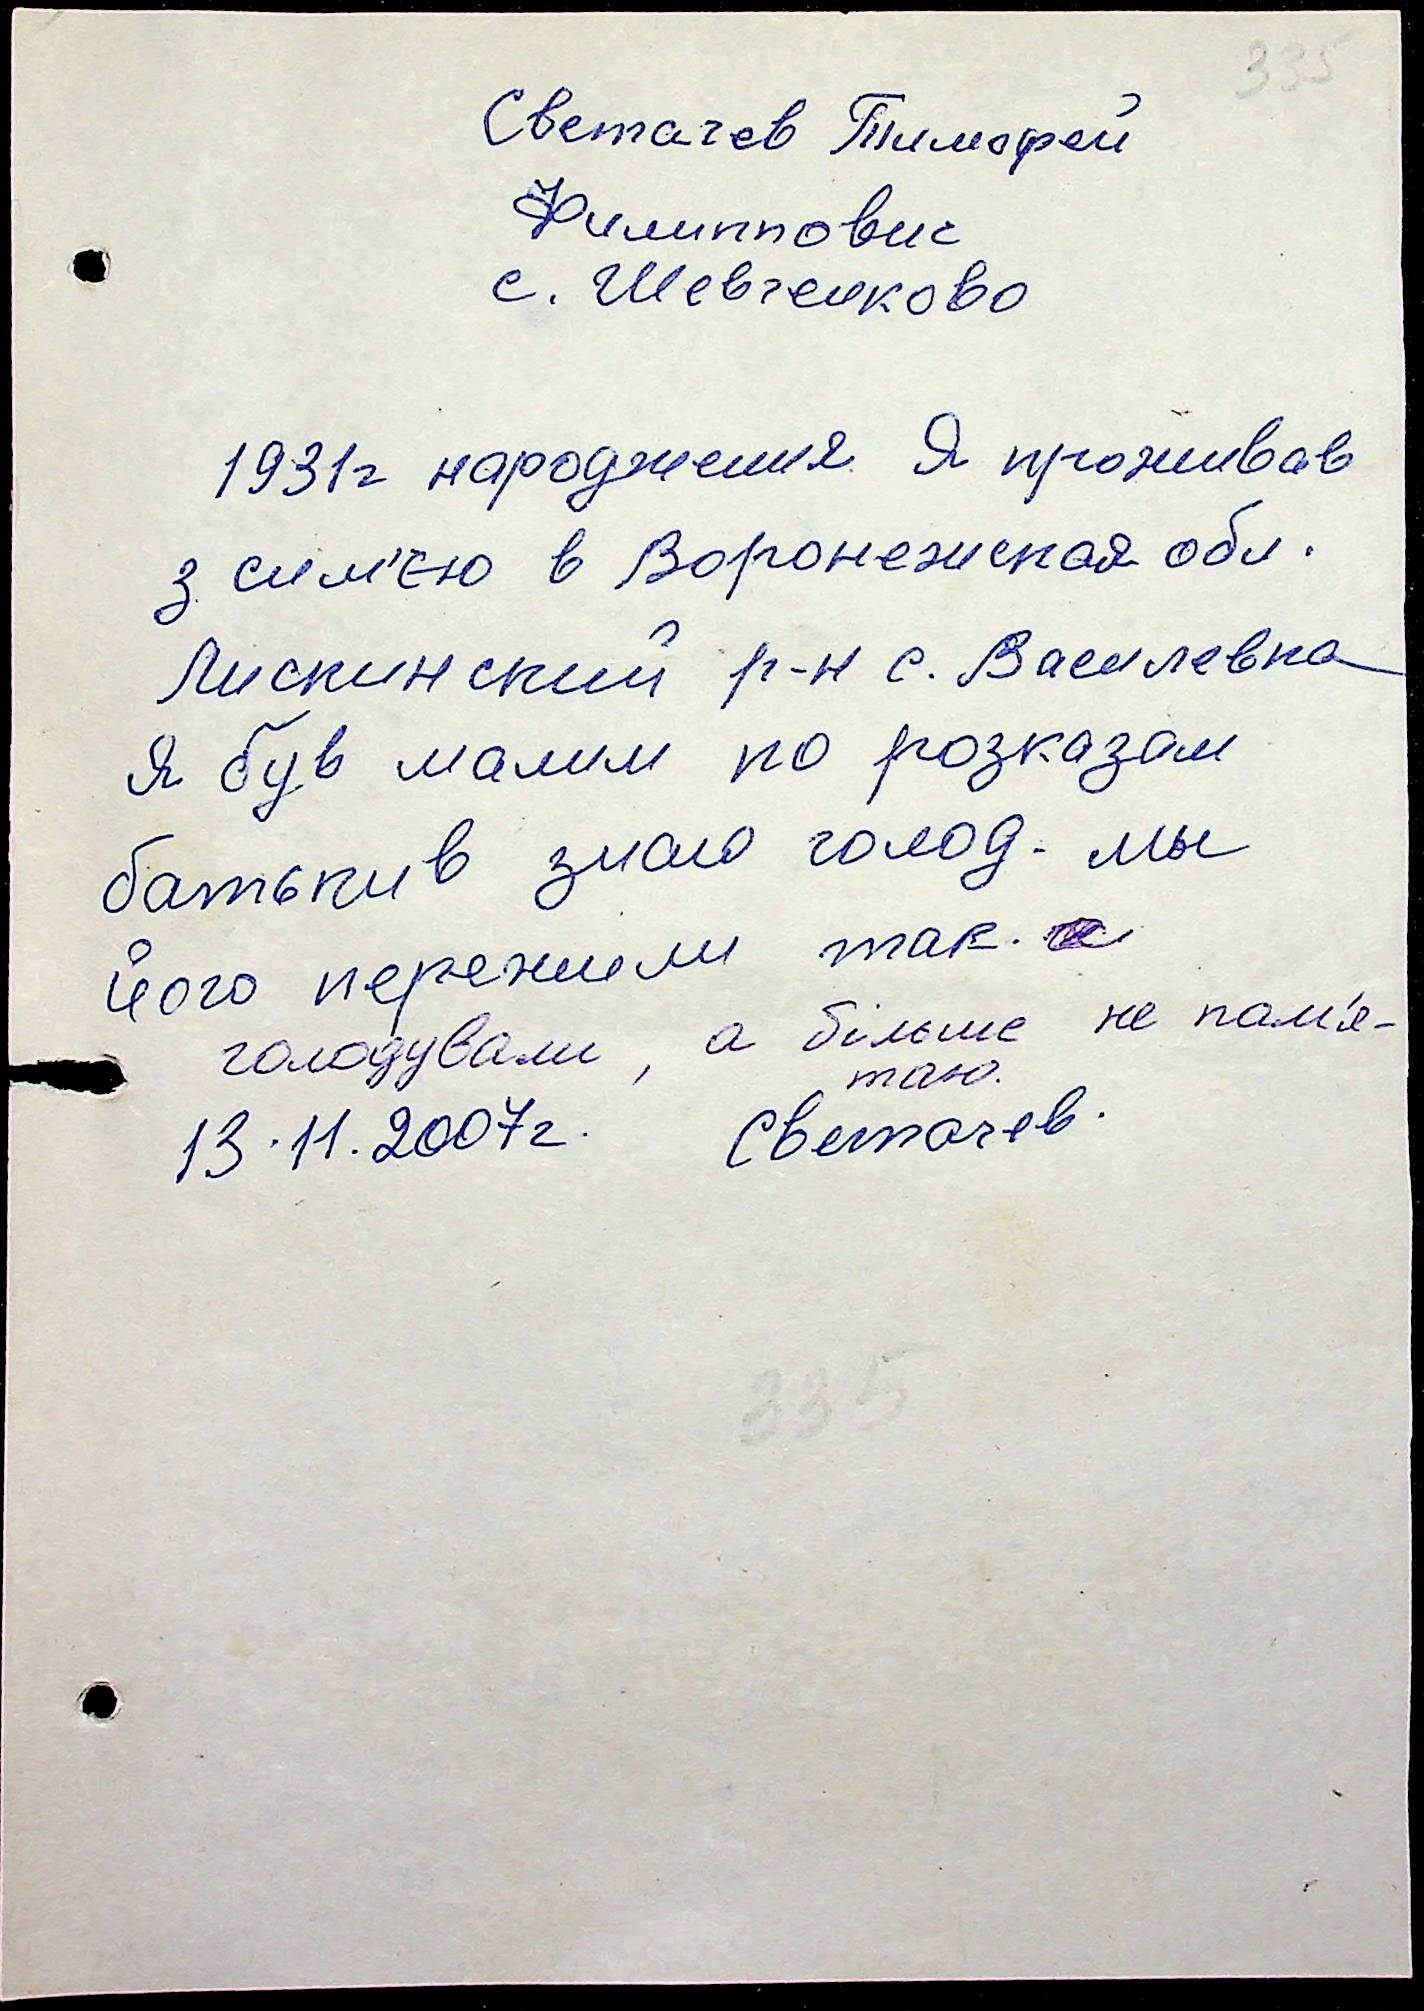 335
Светачев Тимофей
Филиппович
с. Шевченково
1931г народження Я проживав
з сим'єю в Воронежская обл.
Лискинский р-н с. Василевка
Я був малим по розказам
батькив знаю голод. мы
його пережили так.
голодували, а більше не пам'я-
таю.
13.11.2007г. Светачев.
335